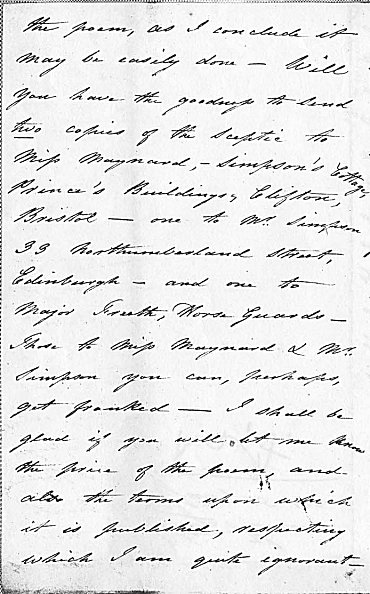 the poem, as I conclude it
may be easily done — Will
you have the goodness to send
two copies of the Sceptic to
Miss Maynard, — Simpson's Cottage,
Prince's Buildings, Clifton,
Bristol — one to Mr. Simpson
33 Northumberland Street,
Edinburgh — and one to
Major Freeth, Horse Guards —
Those to Miss Maynard & Mr.
Simpson you can, perhaps,
get franked — I shall be
glad if you will let me know
the price of the poem, and
also the terms upon which
it is published, respecting
which I am quite ignorant —